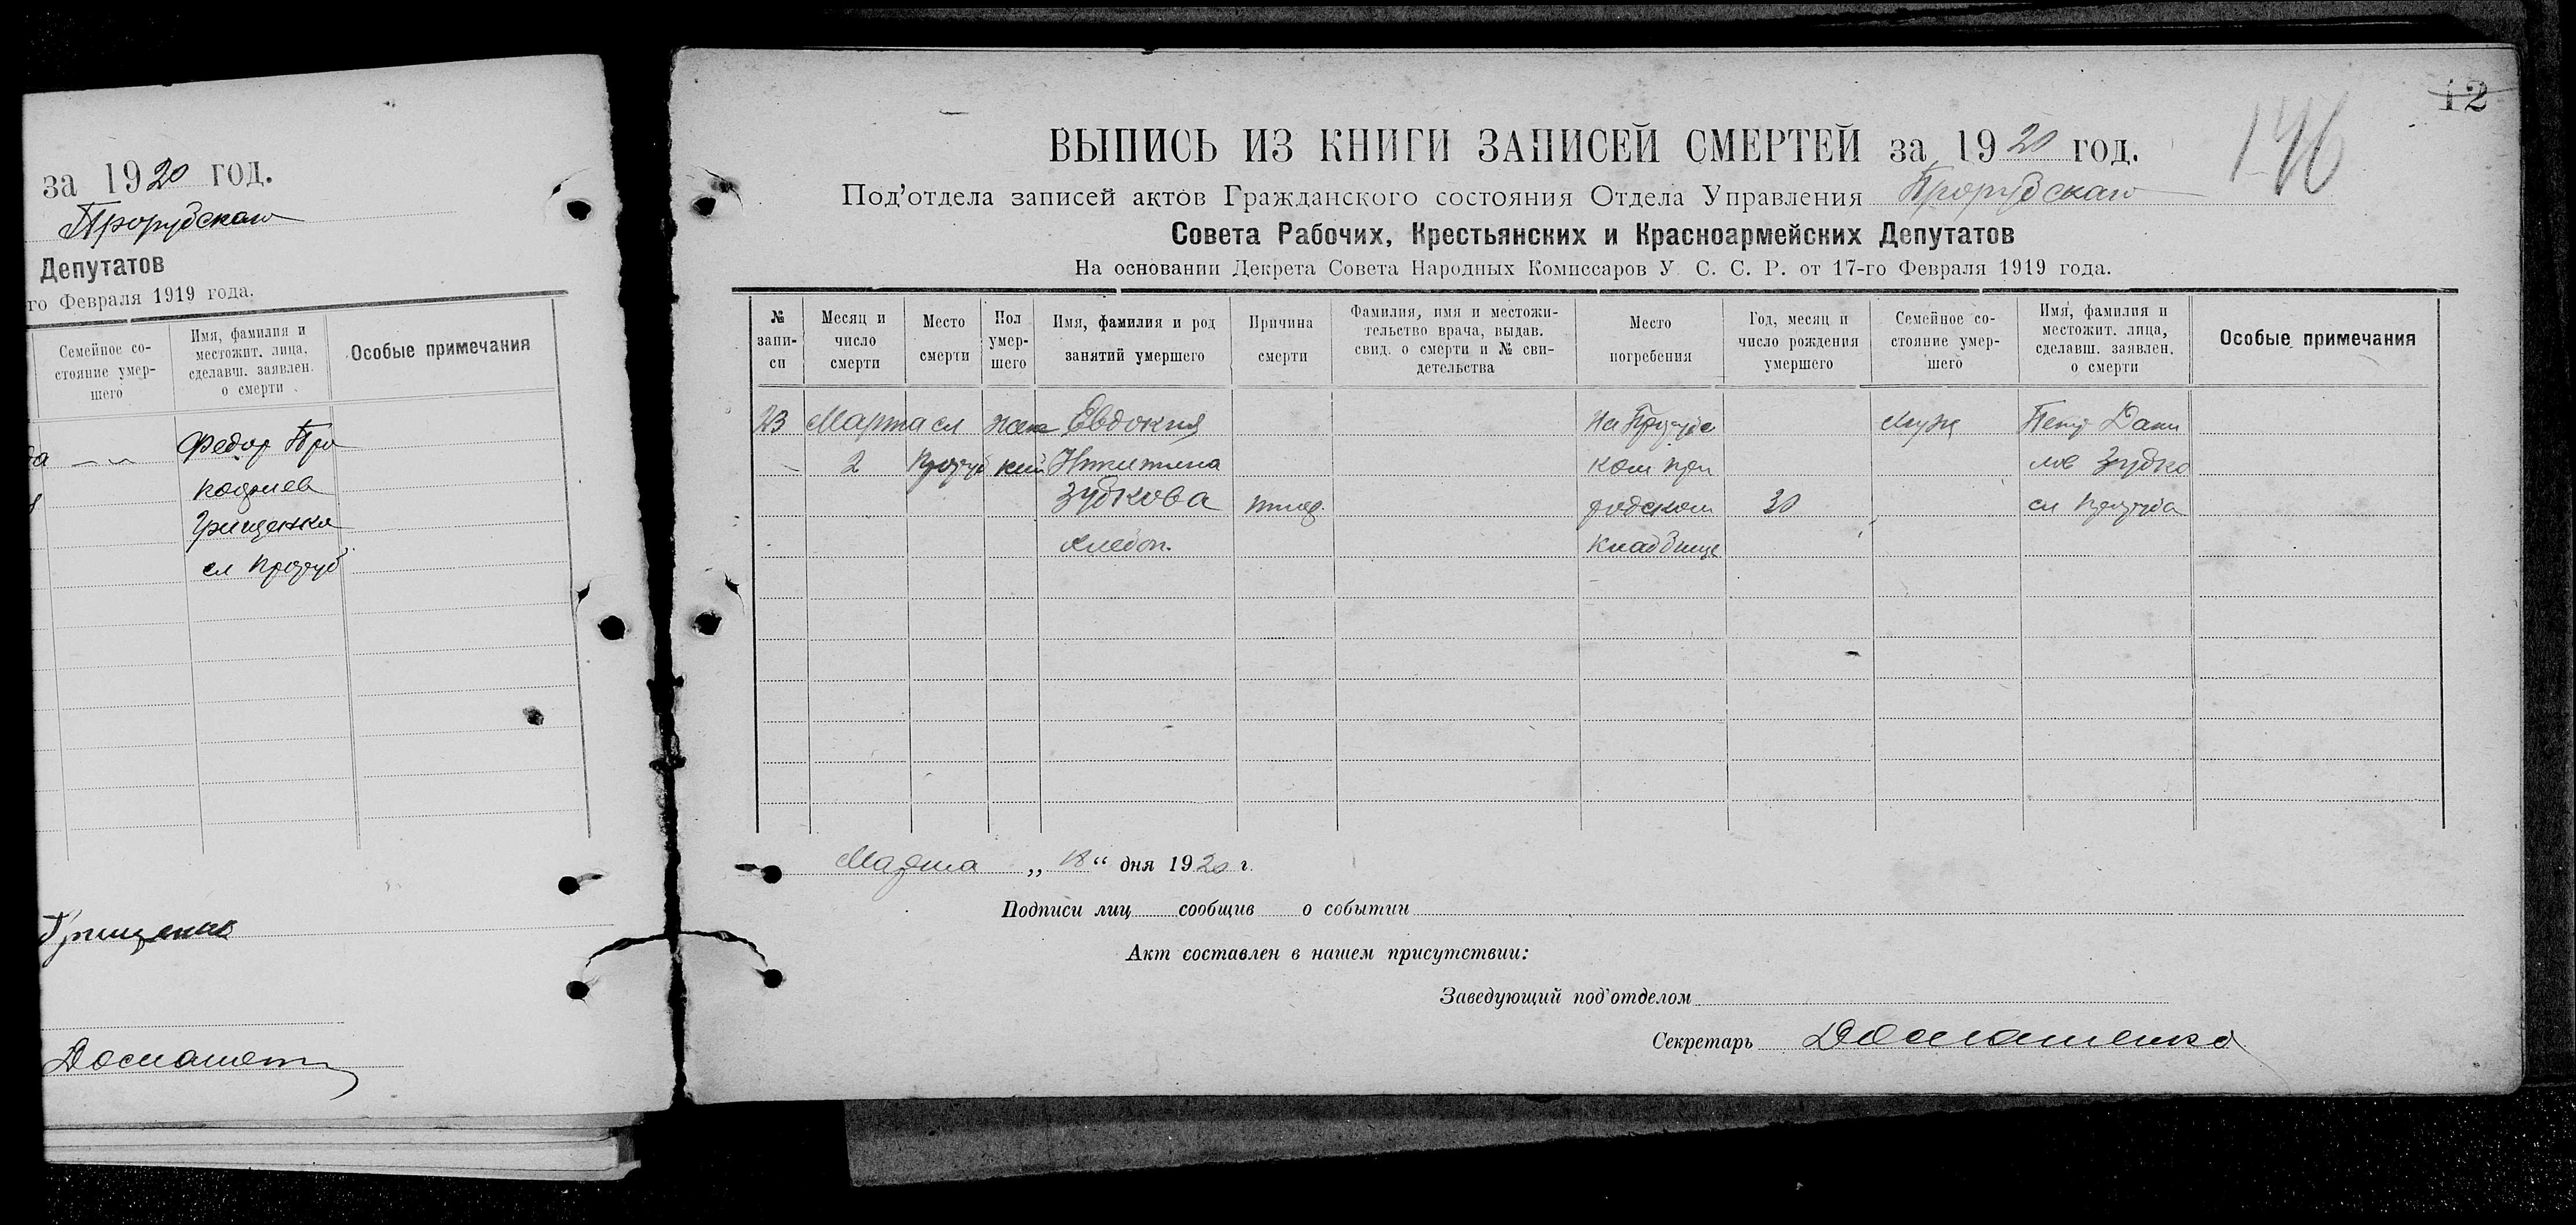 за 1920 год.
Прорубскаго
Депутатов
го Февраля 1919 года.
Семейное со-
стояние умер-
шего
Имя, фамилия и
местожит. лица,
сделавш. заявлен.
о смерти
Особые примечания
Федор Про
Грищенка
сл Проруб
Грищенко
12
146
ВЫПИСЬ ИЗ КНИГИ ЗАПИСЕЙ СМЕРТЕЙ за 1920 год.
Под'отдела записей актов Гражданского состояния Отдела Управления Прорубскаго
Совета Рабочих, Крестьянских и Красноармейских Депутатов
На основании Декрета Совета Народных Комиссаров У. С. С. Р. от 17-го Февраля 1919 года.
№
запи-
си
Месяц и
число
смерти
Место
смерти
Пол
умер-
шего
Имя, фамилия и род
занятий умершего
Причина
смерти
Фамилия, имя и местожи-
тельство врача, выдав.
свид. о смерти и № сви-
детельства
Место
погребения
Год, месяц и
число рождения
умершего
Семейное со-
стояние умер-
шего
Имя, фамилия и
местожит. лица,
сделавш. заявлен.
о смерти
Особые примечания
23
Марта
2
сл
Проруб
жен
кий
Евдокия
Никитина
Зубкова
хлебоп.
тиф.
На
кладбище
30
Муж
Петр Дани
лов Зубко
сл Проруба
Марта „18“ дня 1920 г.
Подписи лиц сообщив о событии
Акт составлен в нашем присутствии:
Заведующий под'отделом
Секретарь Домашенко